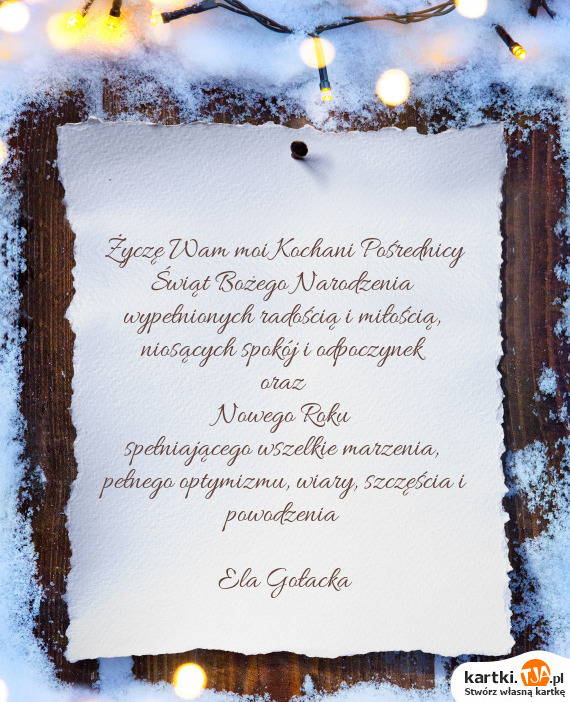 Życzę Wam moi Kochani Pośrednicy
Świąt Bożego Narodzenia
wypełnionych radością i miłością,
niosących spokój i odpoczynek
oraz
Nowego Roku
spełniającego wszelkie marzenia,
pełnego optymizmu, wiary, szczęścia i
powodzenia
Ela Gołacka
kartki.TJA.pl
Stwórz własną kartkę